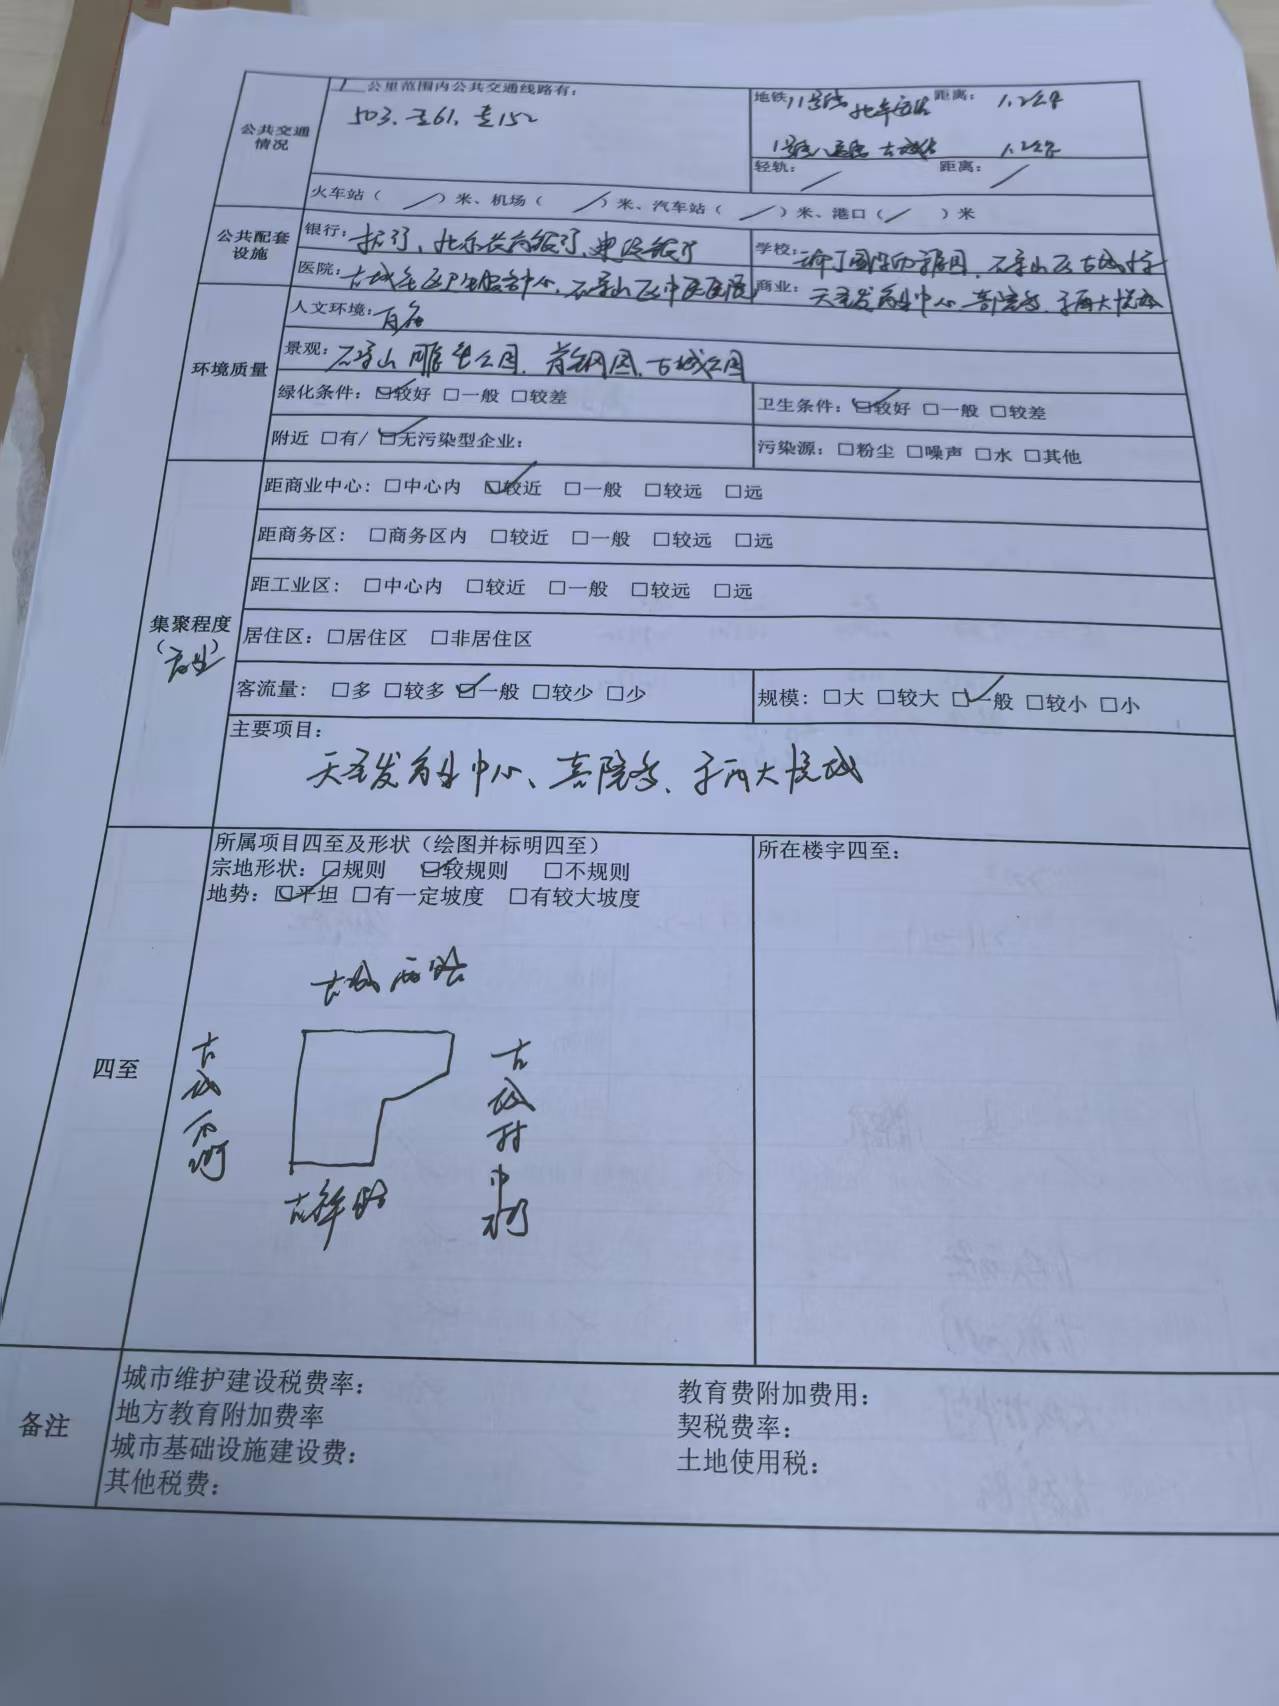 公共交通情况
1 公里范围内公共交通线路有：
503、专61、专152
地铁：11号线 北辛安站 距离：1.2公里
1号线八通线 古城站 1.2公里
轻轨：／ 距离：／
火车站（ ／ ）米、机场（ ／ ）米、汽车站（ ／ ）米、港口（ ／ ）米
公共配套设施
银行：招行、北京农商银行、建设银行
学校：幼儿园、石景山区古城小学
医院：古城社区卫生服务中心、石景山区中医医院
商业：商业中心、喜隐多、京西大悦城
环境质量
人文环境：
景观：石景山雕塑公园、首钢园、古城公园
绿化条件：☑较好 □一般 □较差
卫生条件：☑较好 □一般 □较差
附近 □有/ ☑无污染型企业：
污染源：□粉尘 □噪声 □水 □其他
集聚程度
（商业）
距商业中心：□中心内 ☑较近 □一般 □较远 □远
距商务区： □商务区内 □较近 □一般 □较远 □远
距工业区： □中心内 □较近 □一般 □较远 □远
居住区：□居住区 □非居住区
客流量： □多 □较多 ☑一般 □较少 □少
规模：□大 □较大 ☑一般 □较小 □小
主要项目：
商业中心、京西大悦城
四至
所属项目四至及形状（绘图并标明四至）
宗地形状：□规则 ☑较规则 □不规则
地势：☑平坦 □有一定坡度 □有较大坡度
所在楼宇四至：
古城西路
古城
古城村中
古
备注
城市维护建设税费率：
教育费附加费用：
地方教育附加费率
契税费率：
城市基础设施建设费：
土地使用税：
其他税费：